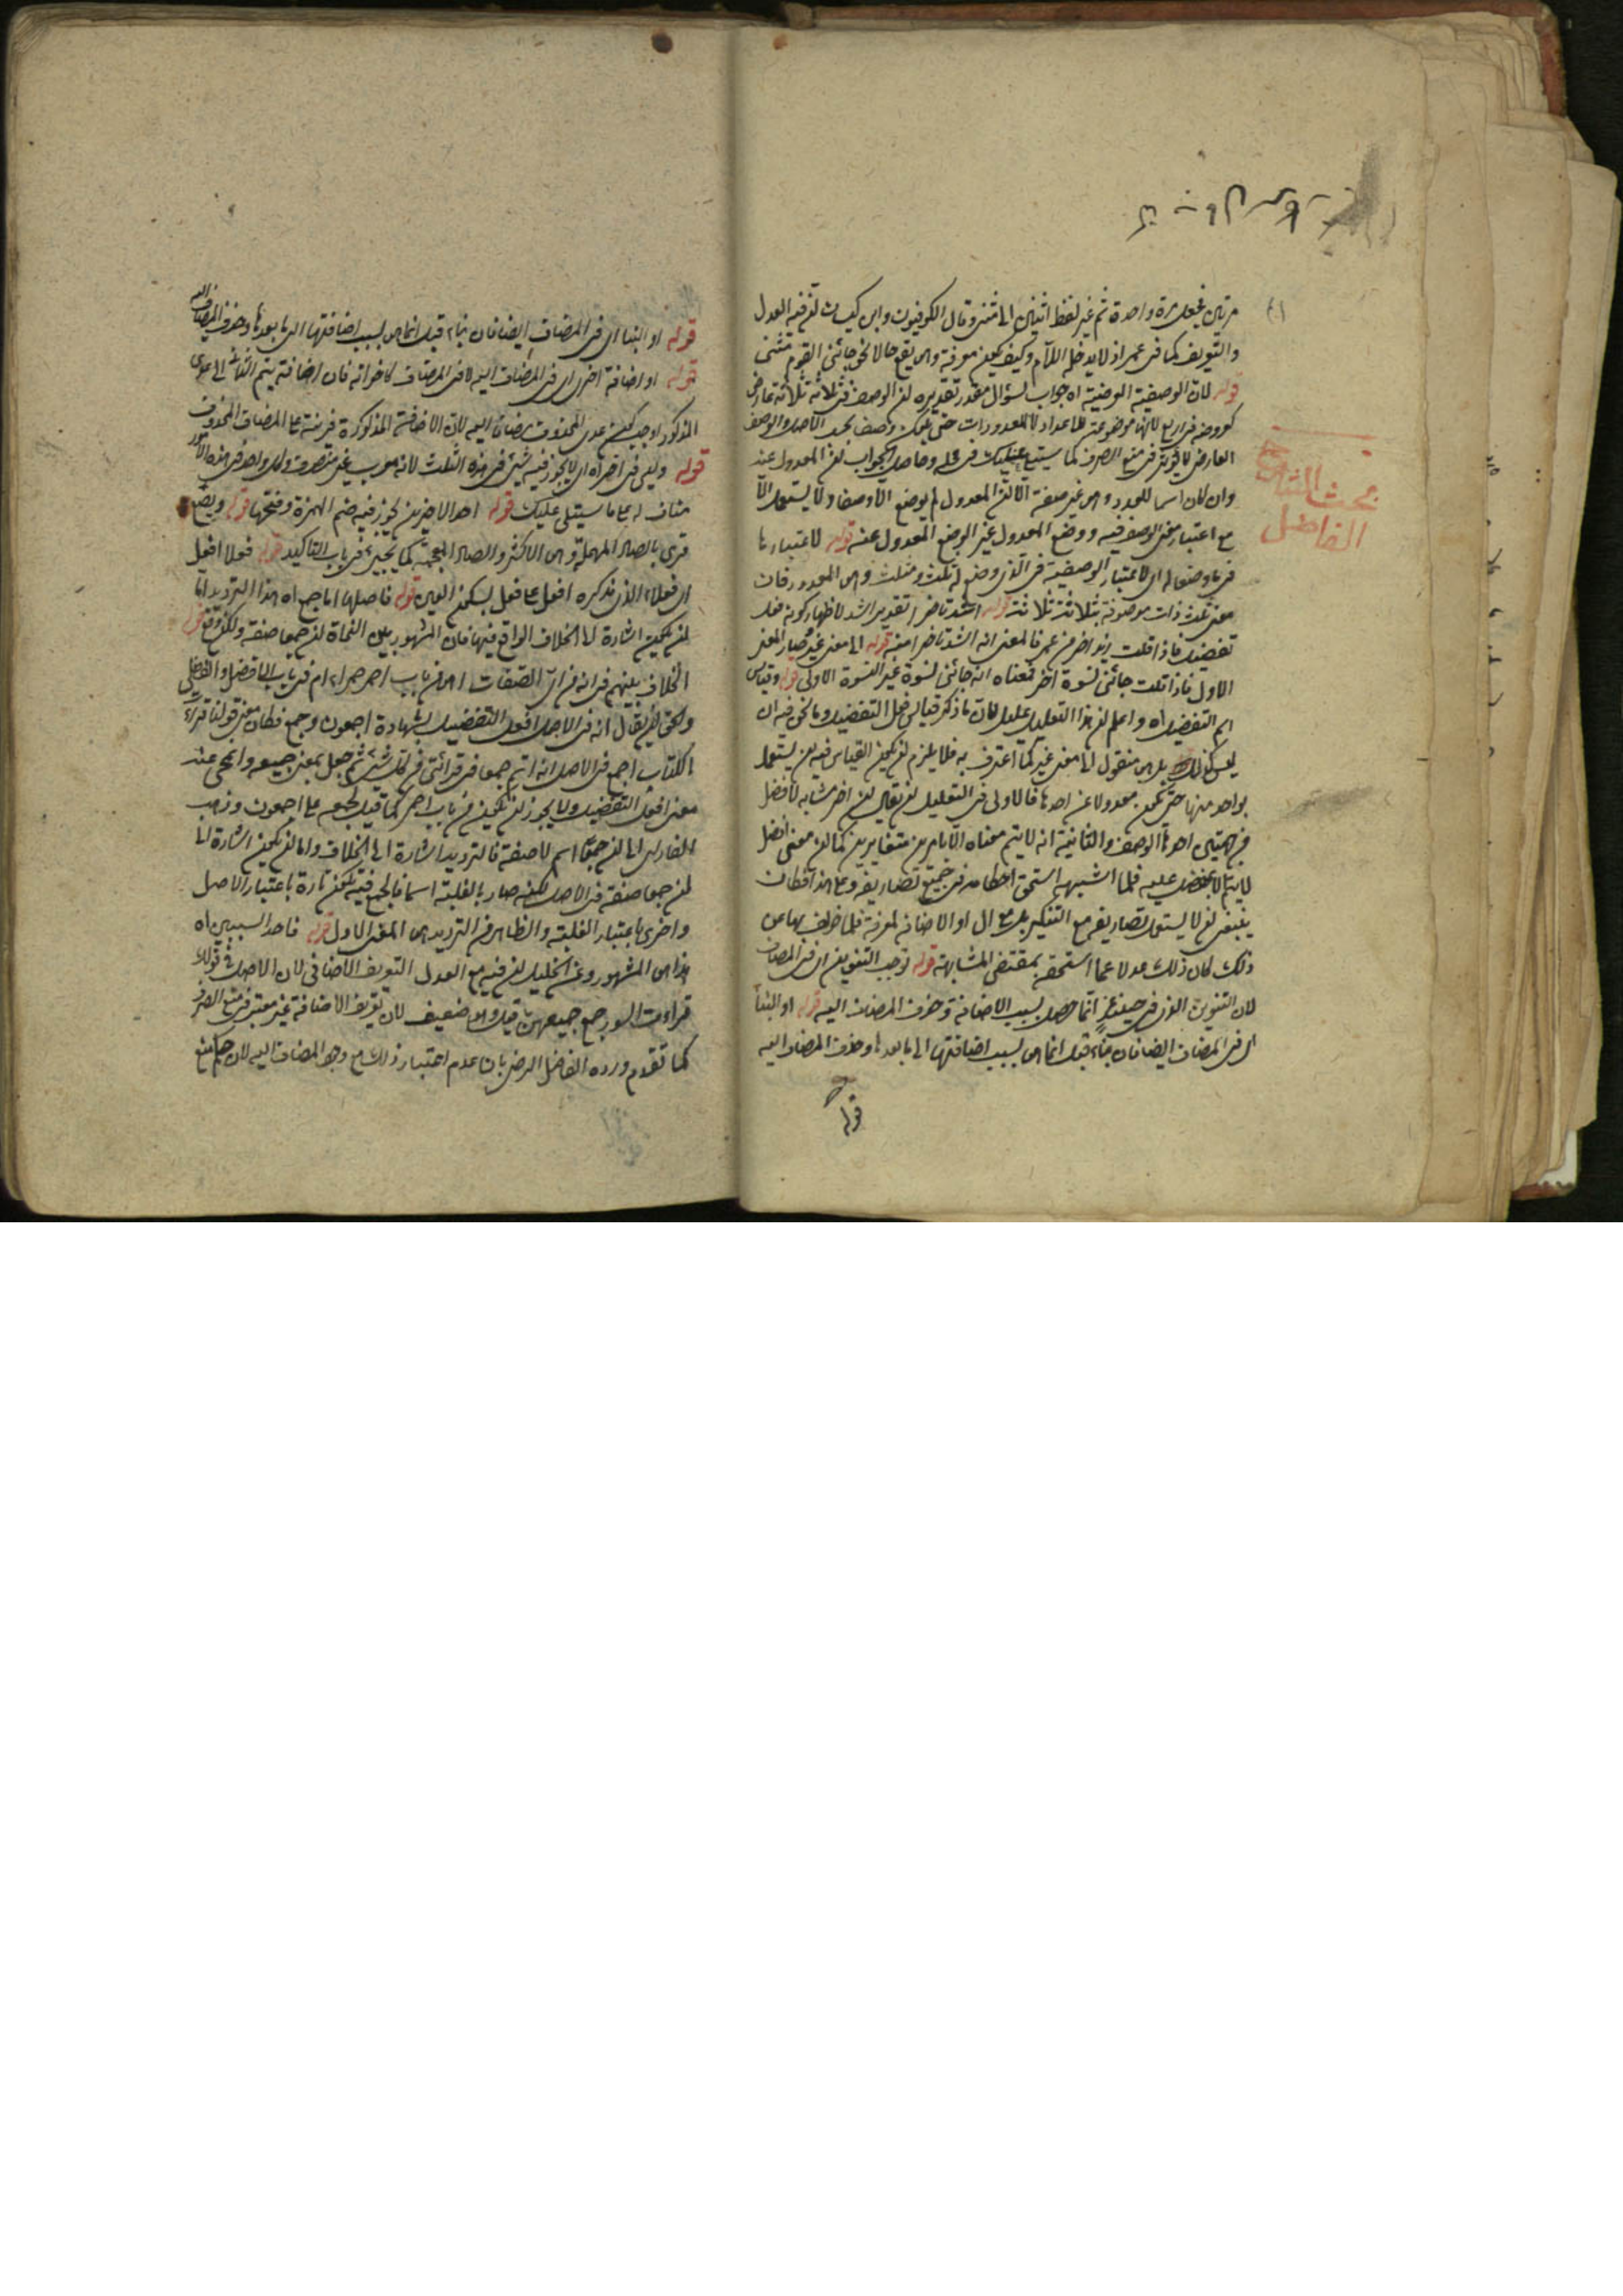 مرتين فجعل مرة واحدة ثم غير لفظ اثنين الى مثنى وقال الكوفيون وابن كيسان ان فيه العدل
والتعريف كما فى عمر اذ لا يدخله اللام وكيف يكون معرفة وهو يقع حالا نحو جائنى القوم مثنى
قوله لان الوصفية العرضية اه جواب لسؤال مقدر تقديره ان الوصف فى ثلاثة ثلاثة عارض
كعروضه فى اربع لانها موضوعة للاعداد لا للمعدودات
العارض لا يؤثر فى منع الصرف كما سيتلى عليك فى محله وحاصل الجواب ان المعدول عنه
وان كان اسما للعدد وهو غير صفة الا ان المعدول لم يوضع الا وصفا ولا يستعمل الا
مع اعتبار معنى الوصف فيه ووضع المعدول غير الوضع المعدول عنه قوله لاعتبارها
فيما وضعا له اى لاعتبار الوصفية فى الذى وضع له ثلث ومثلث وهو المعدود فان
معنى ثلث ذات موصوفة بثلاثة ثلاثة قوله اشد تاخرا تقدير اشد لاظهار كونه فعل
تفضيل فاذا قلت زيد اخر من عمر فالمعنى انه اشد تاخرا منه قوله الى معنى غير فصار المعنى
الاول فاذا قلت جائنى نسوة اخر فمعناه انه جائنى نسوة غير النسوة الاولى قوله وقياس
اسم التفضيل اه واعلم ان هذا التعليل عليل لان ما ذكر قياس افعل التفضيل وما نحن فيه ان
ليس كذلك بل هو منقول الى معنى غير كما اعترف به فلا يلزم ان يكون القياس فيه ان يستعمل
بواحد منها حتى يكون معدولا عن احدها فالاولى فى التعليل ان يقال ان اخر مشابه لافضل
من جهتين احدهما الوصف والثانية انه لا يتم معناه الا بامرين متغايرين كما ان معنى افضل
لا يتم الا بمفضل عليه فلما اشبهه استحق احكامه فى جميع تصاريفه وعلى هذا فكان
ينبغى ان لا يستعمل تصاريفه مع التنكير بل مع ال او الاضافة لمعرفة فلما خولف بها عن
ذلك كان ذلك عدولا عما استحقه بمقتضى المشابهة قوله توجب التنوين اى فى المضاف
لان التنوين الذى فى حينئذ انما حصل بسبب الاضافة وحذف المضاف اليه قوله او البناء
اى فى المضاف ايضا فان بناء قبل انما هى بسبب اضافتها الى ما بعدها وحذف المضاف اليه
قوله
قوله او البناء اى فى المضاف ايضا فان بناء قبل انما هى بسبب اضافتها الى ما بعدها وحذف المضاف اليه
قوله او اضافة اخرى اى فى المضاف اليه لا فى المضاف
المذكور اليه لان الاضافة المذكورة قرينة على المضاف المحذوف
قوله وليس فى اخر اه اى لا يجوز فيه شئ من هذه الثلث لانه معرب غير منصرف
مناف له على ما سيتلى عليك قوله احد الاخرين يجوز فيه ضم الهمزة وفتحها قوله وبصع
قرئ بالصاد المهملة وهو الاكثر والضاد المعجمة كما يجيئ فى باب التاكيد قوله فعلاء افعل
اى فعلاء الذى مذكره افعل على فعل بسكون العين قوله فاصلها اما جمع اه هذا الترديد اما
ان يكون اشارة الى الخلاف الواقع فيها فان المشهور بين النحاة ان جمعا صفة ولكن وقع
الخلاف بينهم فى انه من اى الصفات اهو من باب احمر حمراء ام من باب الافضل والفضلى
والحق ان يقال انه فى الاصل افعل التفضيل بشهادة اجمعون وجمع فكان معنى قولنا قراءة
الكتاب اجمع فى الاصل انه اتم جمعا فى قرائتى من كل شئ ثم جعل بمعنى جميعه وانمحى عنه
معنى افعل التفضيل ولا يجوز ان يكون من باب احمر كما قيل لجمعه على اجمعون وذهب
الفارسى الى ان جمعاء اسم لا صفة فالترديد اشارة الى الخلاف واما ان يكون اشارة الى
ان جمعا صفة فى الاصل لكنه صار بالغلبة اسما فالجمع فيه يكون تارة باعتبار الاصل
واخرى باعتبار الغلبة والظاهر من الترديد هو المعنى الاول قوله فاحد السببين اه
هذا هو المشهور وعن الخليل ان فيه مع العدل التعريف الاضافى لان الاصل فى قولك
قراءت السور جمع جميعهن قيل وهو ضعيف لان تعريف الاضافة غير معتبر فى منع الصرف
كما تقدم ورده الفاضل الرضى بان عدم اعتبار ذلك مع وجود المضاف اليه لان حكم منع